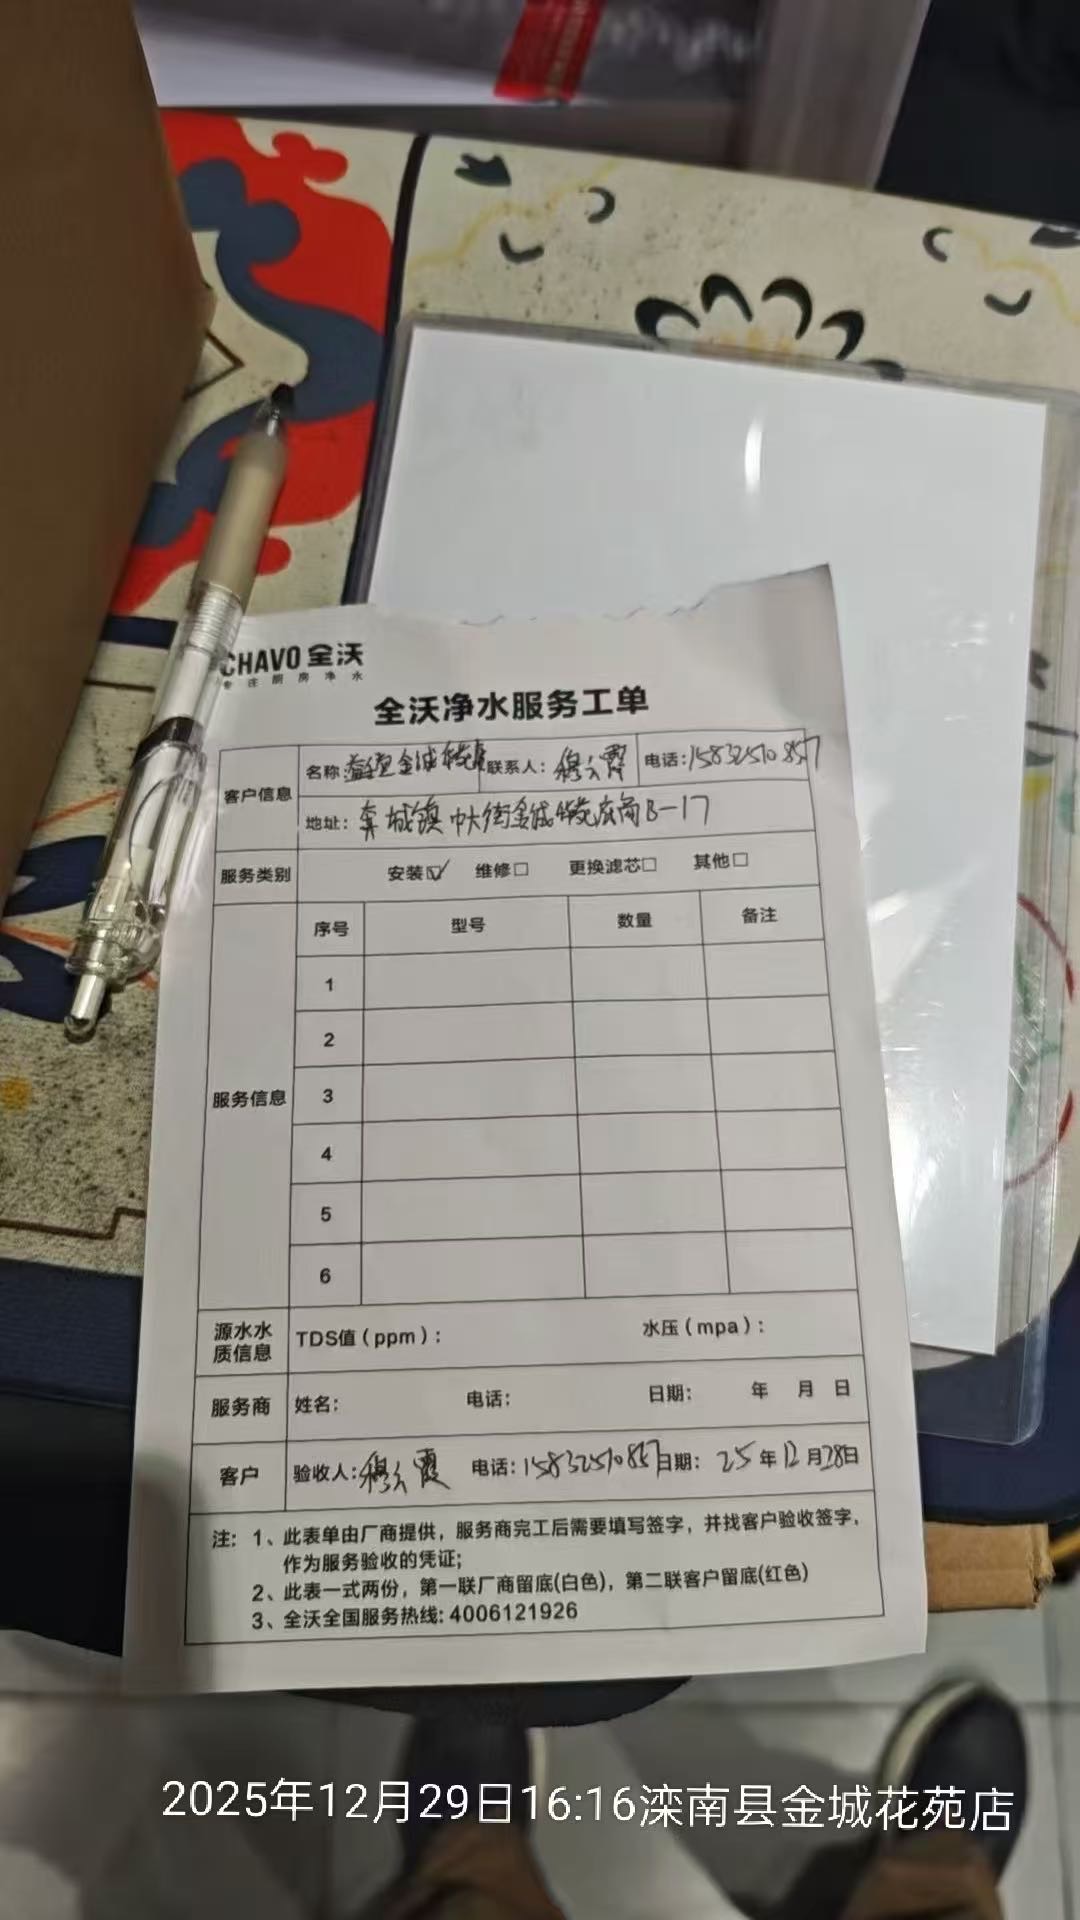 CHAVO 全沃
专注厨房净水
全沃净水服务工单
客户信息 名称 金城 联系人：穆 霞 电话：15832510857
地址： 城镇中大街金城花苑底商B-17
服务类别 安装☑ 维修□ 更换滤芯□ 其他□
服务信息 序号 型号 数量 备注
1
2
3
4
5
6
源水水质信息 TDS值（ppm）： 水压（mpa）：
服务商 姓名： 电话： 日期： 年 月 日
客户 验收人：穆 霞 电话：15832510857 日期：25年12月28日
注：1、此表单由厂商提供，服务商完工后需要填写签字，并找客户验收签字，
作为服务验收的凭证；
2、此表一式两份，第一联厂商留底(白色)，第二联客户留底(红色)
3、全沃全国服务热线：4006121926
2025年12月29日16:16滦南县金城花苑店